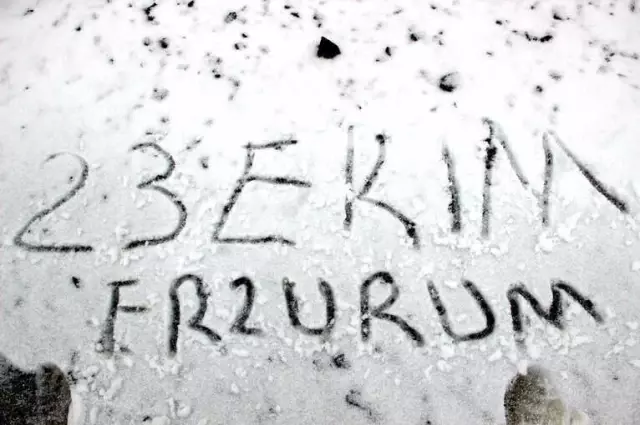 23 EKIM
ERZURUM